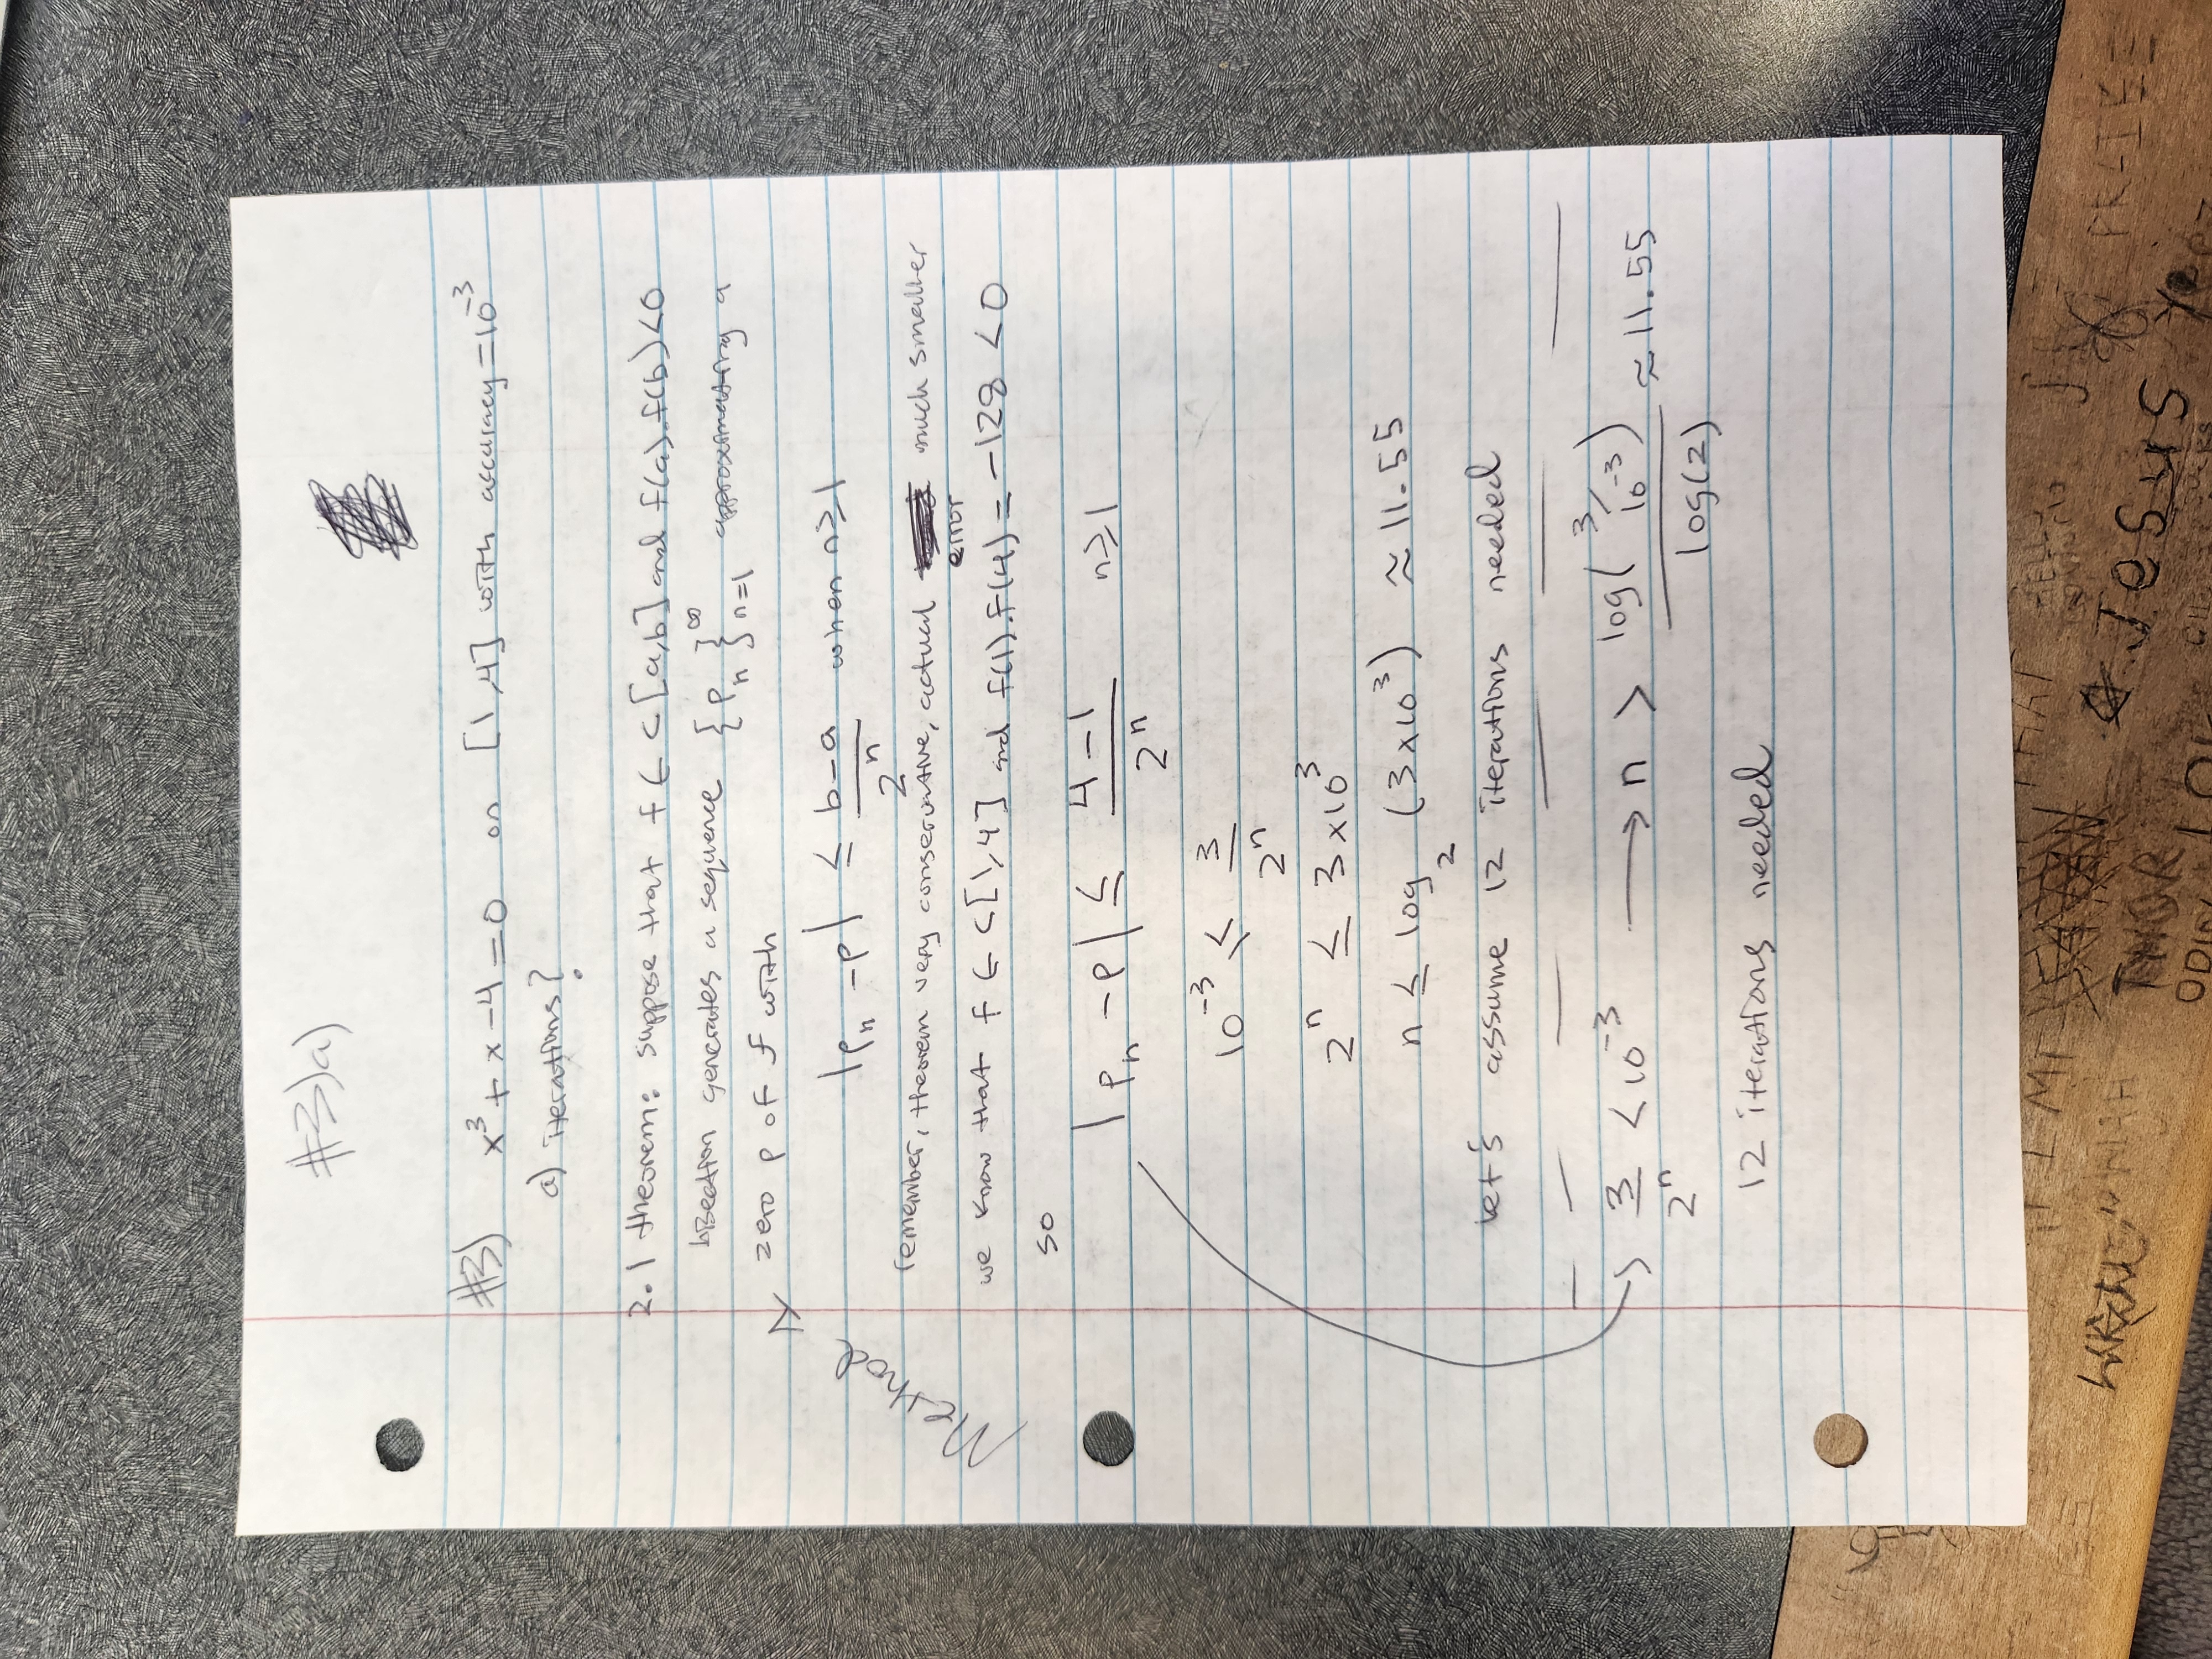 #3)a)
#3) x³ + x - 4 = 0 on [1,4] with accuracy = 10⁻³
a) iterations?
2.1 theorem: suppose that f ∈ C[a,b] and f(a).f(b)<0
bisection generates a sequence {pₙ}∞ n=1 approximating a
zero p of f with
Method
|pₙ - p| ≤ (b-a)/2ⁿ when n≥1
remember, theorem very conservative, actual error much smaller
we know that f ∈ C[1,4] and f(1).f(4) = -128 <0
so
|pₙ - p| ≤ (4-1)/2ⁿ n≥1
10⁻³ ≤ 3/2ⁿ
2ⁿ ≤ 3x10³
n ≤ log₂ (3x10³) ≈ 11.55
let's assume 12 iterations needed
3/2ⁿ < 10⁻³ → n > log(3/10⁻³)/log(2) ≈ 11.55
12 iterations needed
THAT
THOR
Jesus
ODIN